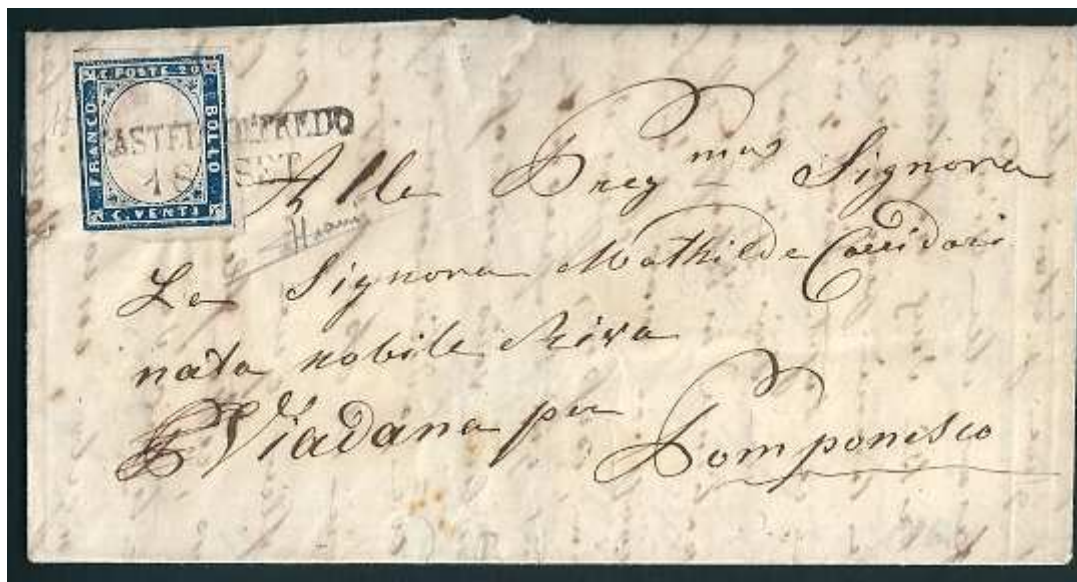 C. POSTE 20
FRANCO
BOLLO
C. VENTI
CASTEL GOFFREDO
18 SET
Alla Preg mas Signora
La Signora Mathilde
nata nobile Riva
Viadana per Pomponesco